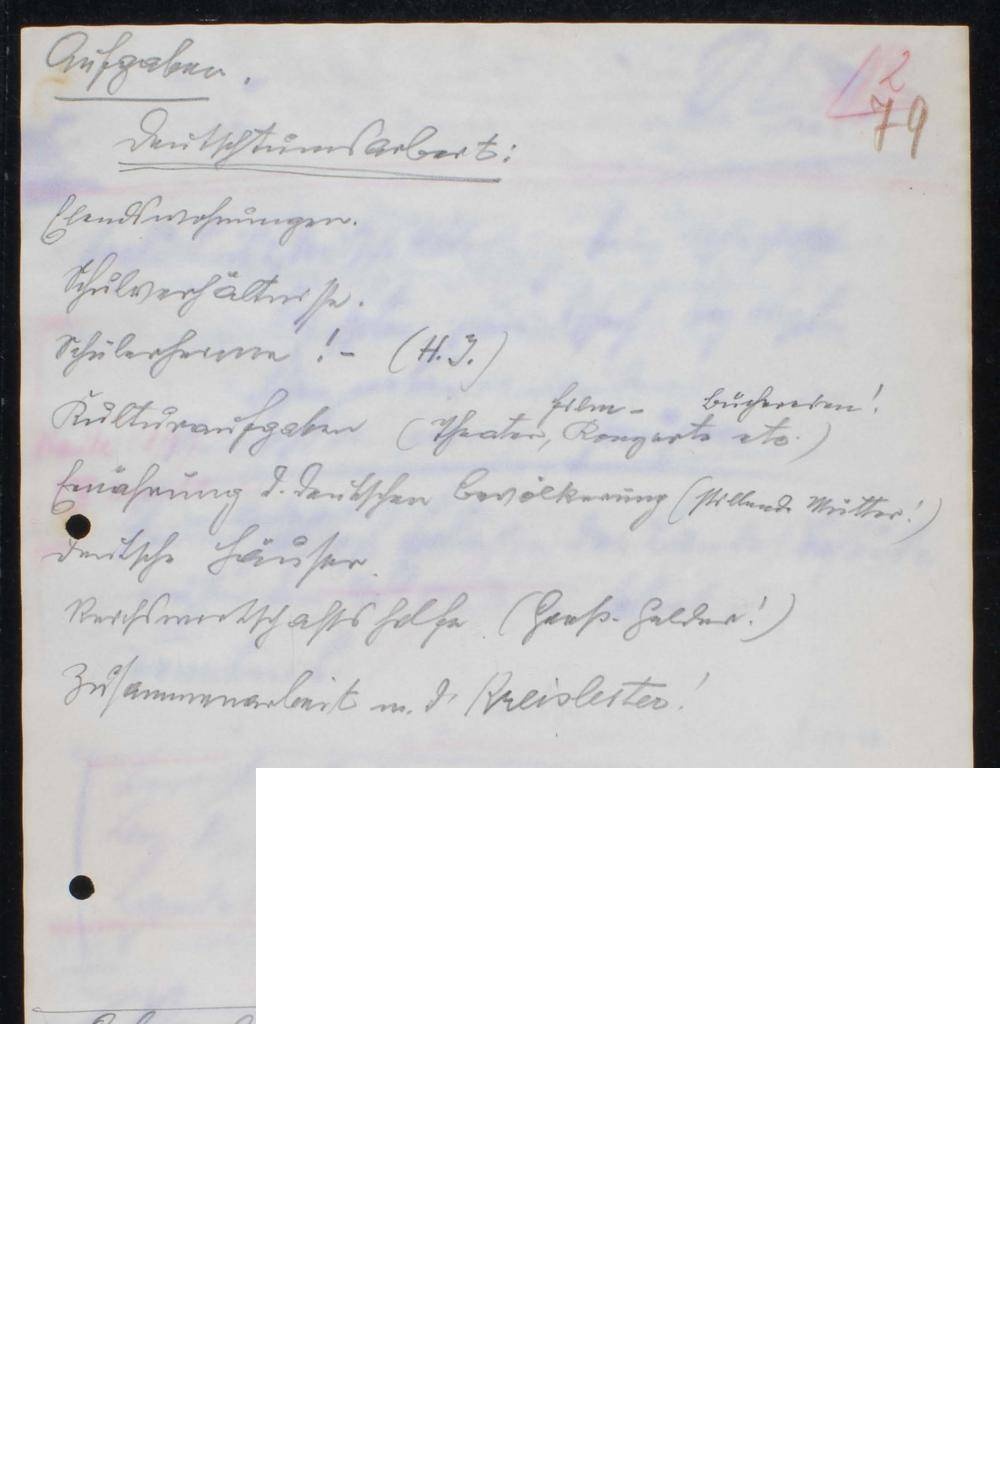 Aufgaben.
2
79
Deutschtumsarbeit:
Elendswohnungen.
Schulverhältnisse.
Schülerheime! - (H.J.)
Film - Büchereien!
Kulturaufgaben (Theater, Konzerte etc.)
Ernährung d. deutschen Bevölkerung (stillende Mütter!)
Deutsche Häuser.
Reichswirtschaftshilfe (Gelder!)
Zusammenarbeit m. d. Kreisleiter!